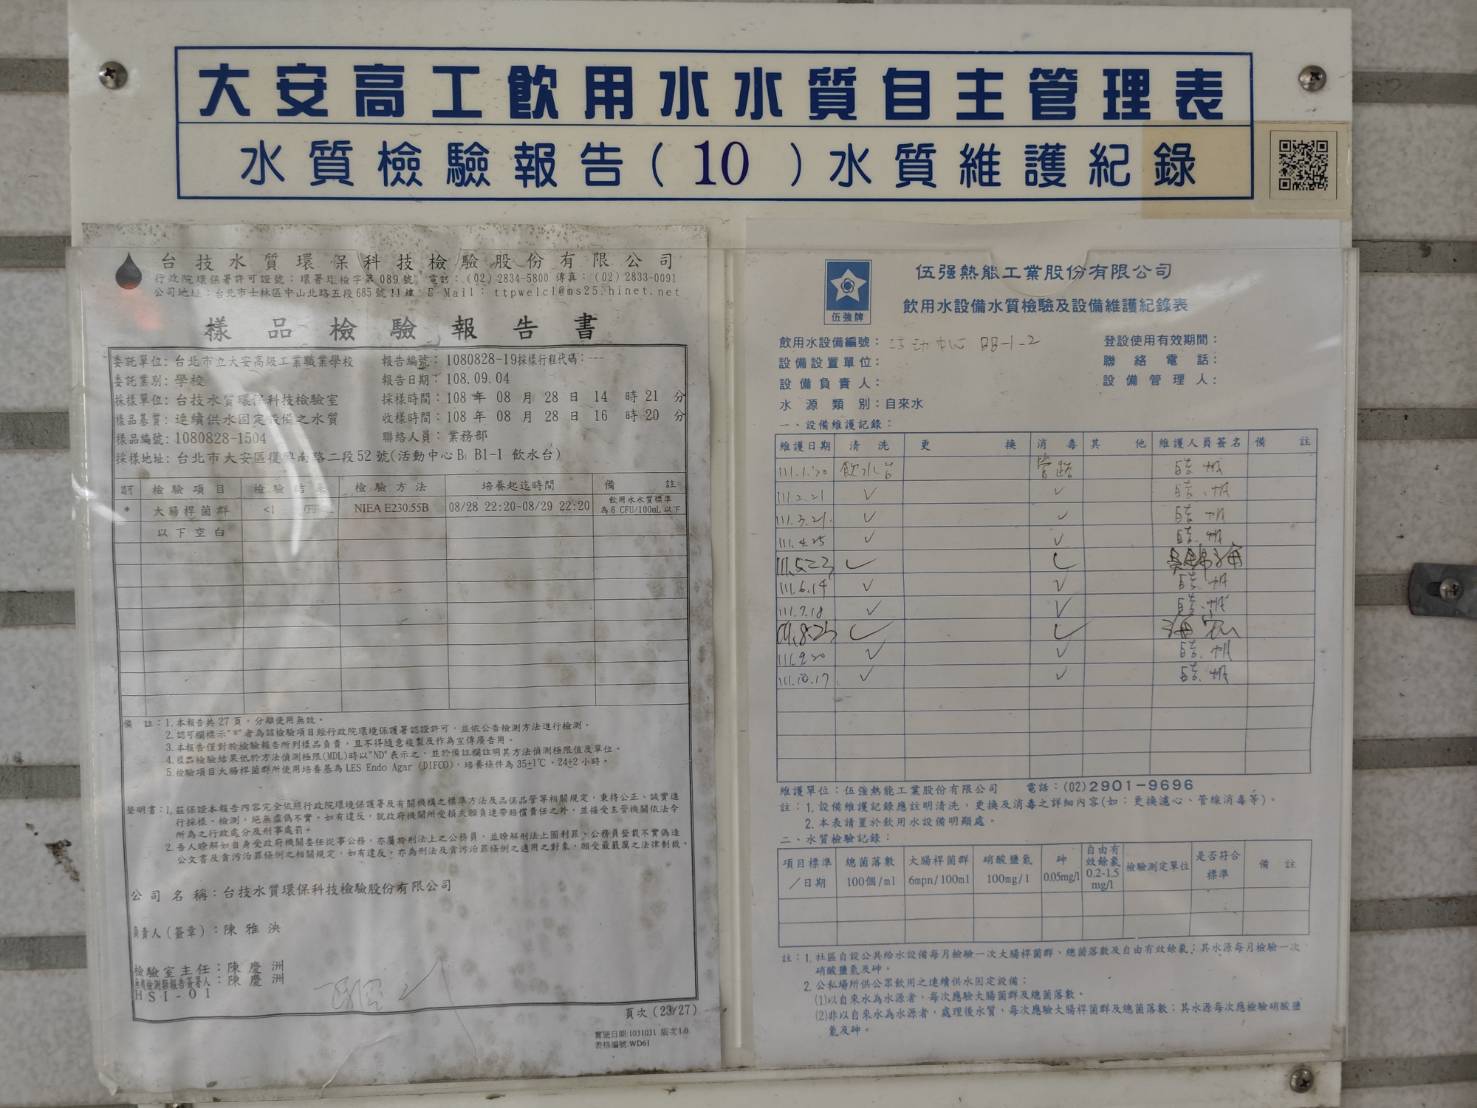 大安高工飲用水水質自主管理表
水質檢驗報告(10)水質維護紀錄
台技水質環保科技檢驗股份有限公司
行政院環保署許可證號：環署環檢字第089號 電話：(02)2834-5800 傳真：(02)2833-0091
公司地址：台北市士林區中山北路五段685號11樓 E-Mail：ttpwelcl@ms25.hinet.net
樣品檢驗報告書
委託單位：台北市立大安高級工業職業學校 報告編號：1080828-19採樣行程代碼：---
委託業別：學校 報告日期：108.09.04
採樣單位：台技水質環保科技檢驗室 採樣時間：108 年 08 月 28 日 14 時 21 分
樣品基質：連續供水固定設備之水質 收樣時間：108 年 08 月 28 日 16 時 20 分
樣品編號：1080828-1504 聯絡人員：業務部
採樣地址：台北市大安區復興南路二段52號(活動中心B B1-1 飲水台)
檢驗項目 檢驗結果 檢驗方法 培養起迄時間 備註
* 大腸桿菌群 <1 NIEA E230.55B 08/28 22:20-08/29 22:20 飲用水水質標準為6 CFU/100mL以下
以下空白
備註：1.本報告共27頁，分離使用無效。
2.認可欄標示"*"者為該檢驗項目經行政院環境保護署認證許可，並依公告檢測方法進行檢測。
3.本報告僅對於檢驗報告所列樣品負責，且不得隨意複製及作為宣傳廣告用。
4.樣品檢驗結果低於方法偵測極限(MDL)時以"ND"表示之，並於備註欄註明其方法偵測極限值及單位。
5.檢驗項目大腸桿菌群所使用培養基為LES Endo Agar (DIFCO)，培養條件為35±1℃，24±2小時。
聲明書：1.茲保證本報告內容完全依照行政院環境保護署及有關機構之標準方法及品保品管等相關規定，秉持公正、誠實進
行採樣、檢測，絕無虛偽不實，如有違反，就政府機關所受損失願負連帶賠償責任之外，並接受主管機關依法令
所為之行政處分及刑事處罰。
2.吾人瞭解如自身受政府機關委任從事公務，亦屬於刑法上之公務員，並瞭解刑法上圖利罪、公務員登載不實偽造
公文書及貪污治罪條例之相關規定，如有違反，亦為刑法及貪污治罪條例之適用之對象，願受最嚴厲之法律制裁。
公司名稱：台技水質環保科技檢驗股份有限公司
負責人(簽章)：陳雅泱
檢驗室主任：陳慶洲
檢測報告簽署人：陳慶洲
HSI-01
頁次(23/27)
實施日期:1031031 版次:1.0
表格編號:WD61
伍強牌
伍强熱能工業股份有限公司
飲用水設備水質檢驗及設備維護紀錄表
飲用水設備編號：活动中心 BB-1-2 登設使用有效期間：
設備設置單位： 聯絡電話：
設備負責人： 設備管理人：
水源類別：自來水
一、設備維護記錄：
維護日期 清洗 更換 消毒 其他 維護人員簽名 備註
111.1.20 飲水台 管路
111.2.21 ✓ ✓
111.3.21 ✓ ✓
111.4.25 ✓ ✓
111.5.23 ✓ ✓
111.6.14 ✓ ✓
111.7.18 ✓ ✓
111.8.23 ✓ ✓
111.9.20 ✓ ✓
111.10.17 ✓ ✓
維護單位：伍强熱能工業股份有限公司 電話：(02)2901-9696
註：1.設備維護記錄應註明清洗、更換及消毒之詳細內容(如：更換濾心、管線消毒等)。
2.本表請置於飲用水設備明顯處。
二、水質檢驗記錄：
項目標準/日期 總菌落數100個/ml 大腸桿菌群6mpn/100ml 硝酸鹽氮100mg/l 砷0.05mg/l 自由有效餘氯0.2-1.5mg/l 檢驗測定單位 是否符合標準 備註
註：1.社區自設公共給水設備每月檢驗一次大腸桿菌群、總菌落數及自由有效餘氯；其水源每月檢驗一次
硝酸鹽氮及砷。
2.公私場所供公眾飲用之連續供水固定設備：
(1)以自來水為水源者，每次應驗大腸桿菌群及總菌落數。
(2)非以自來水為水源者，處理後水質，每次應驗大腸桿菌群及總菌落數；其水源每次應檢驗硝酸鹽
氮及砷。